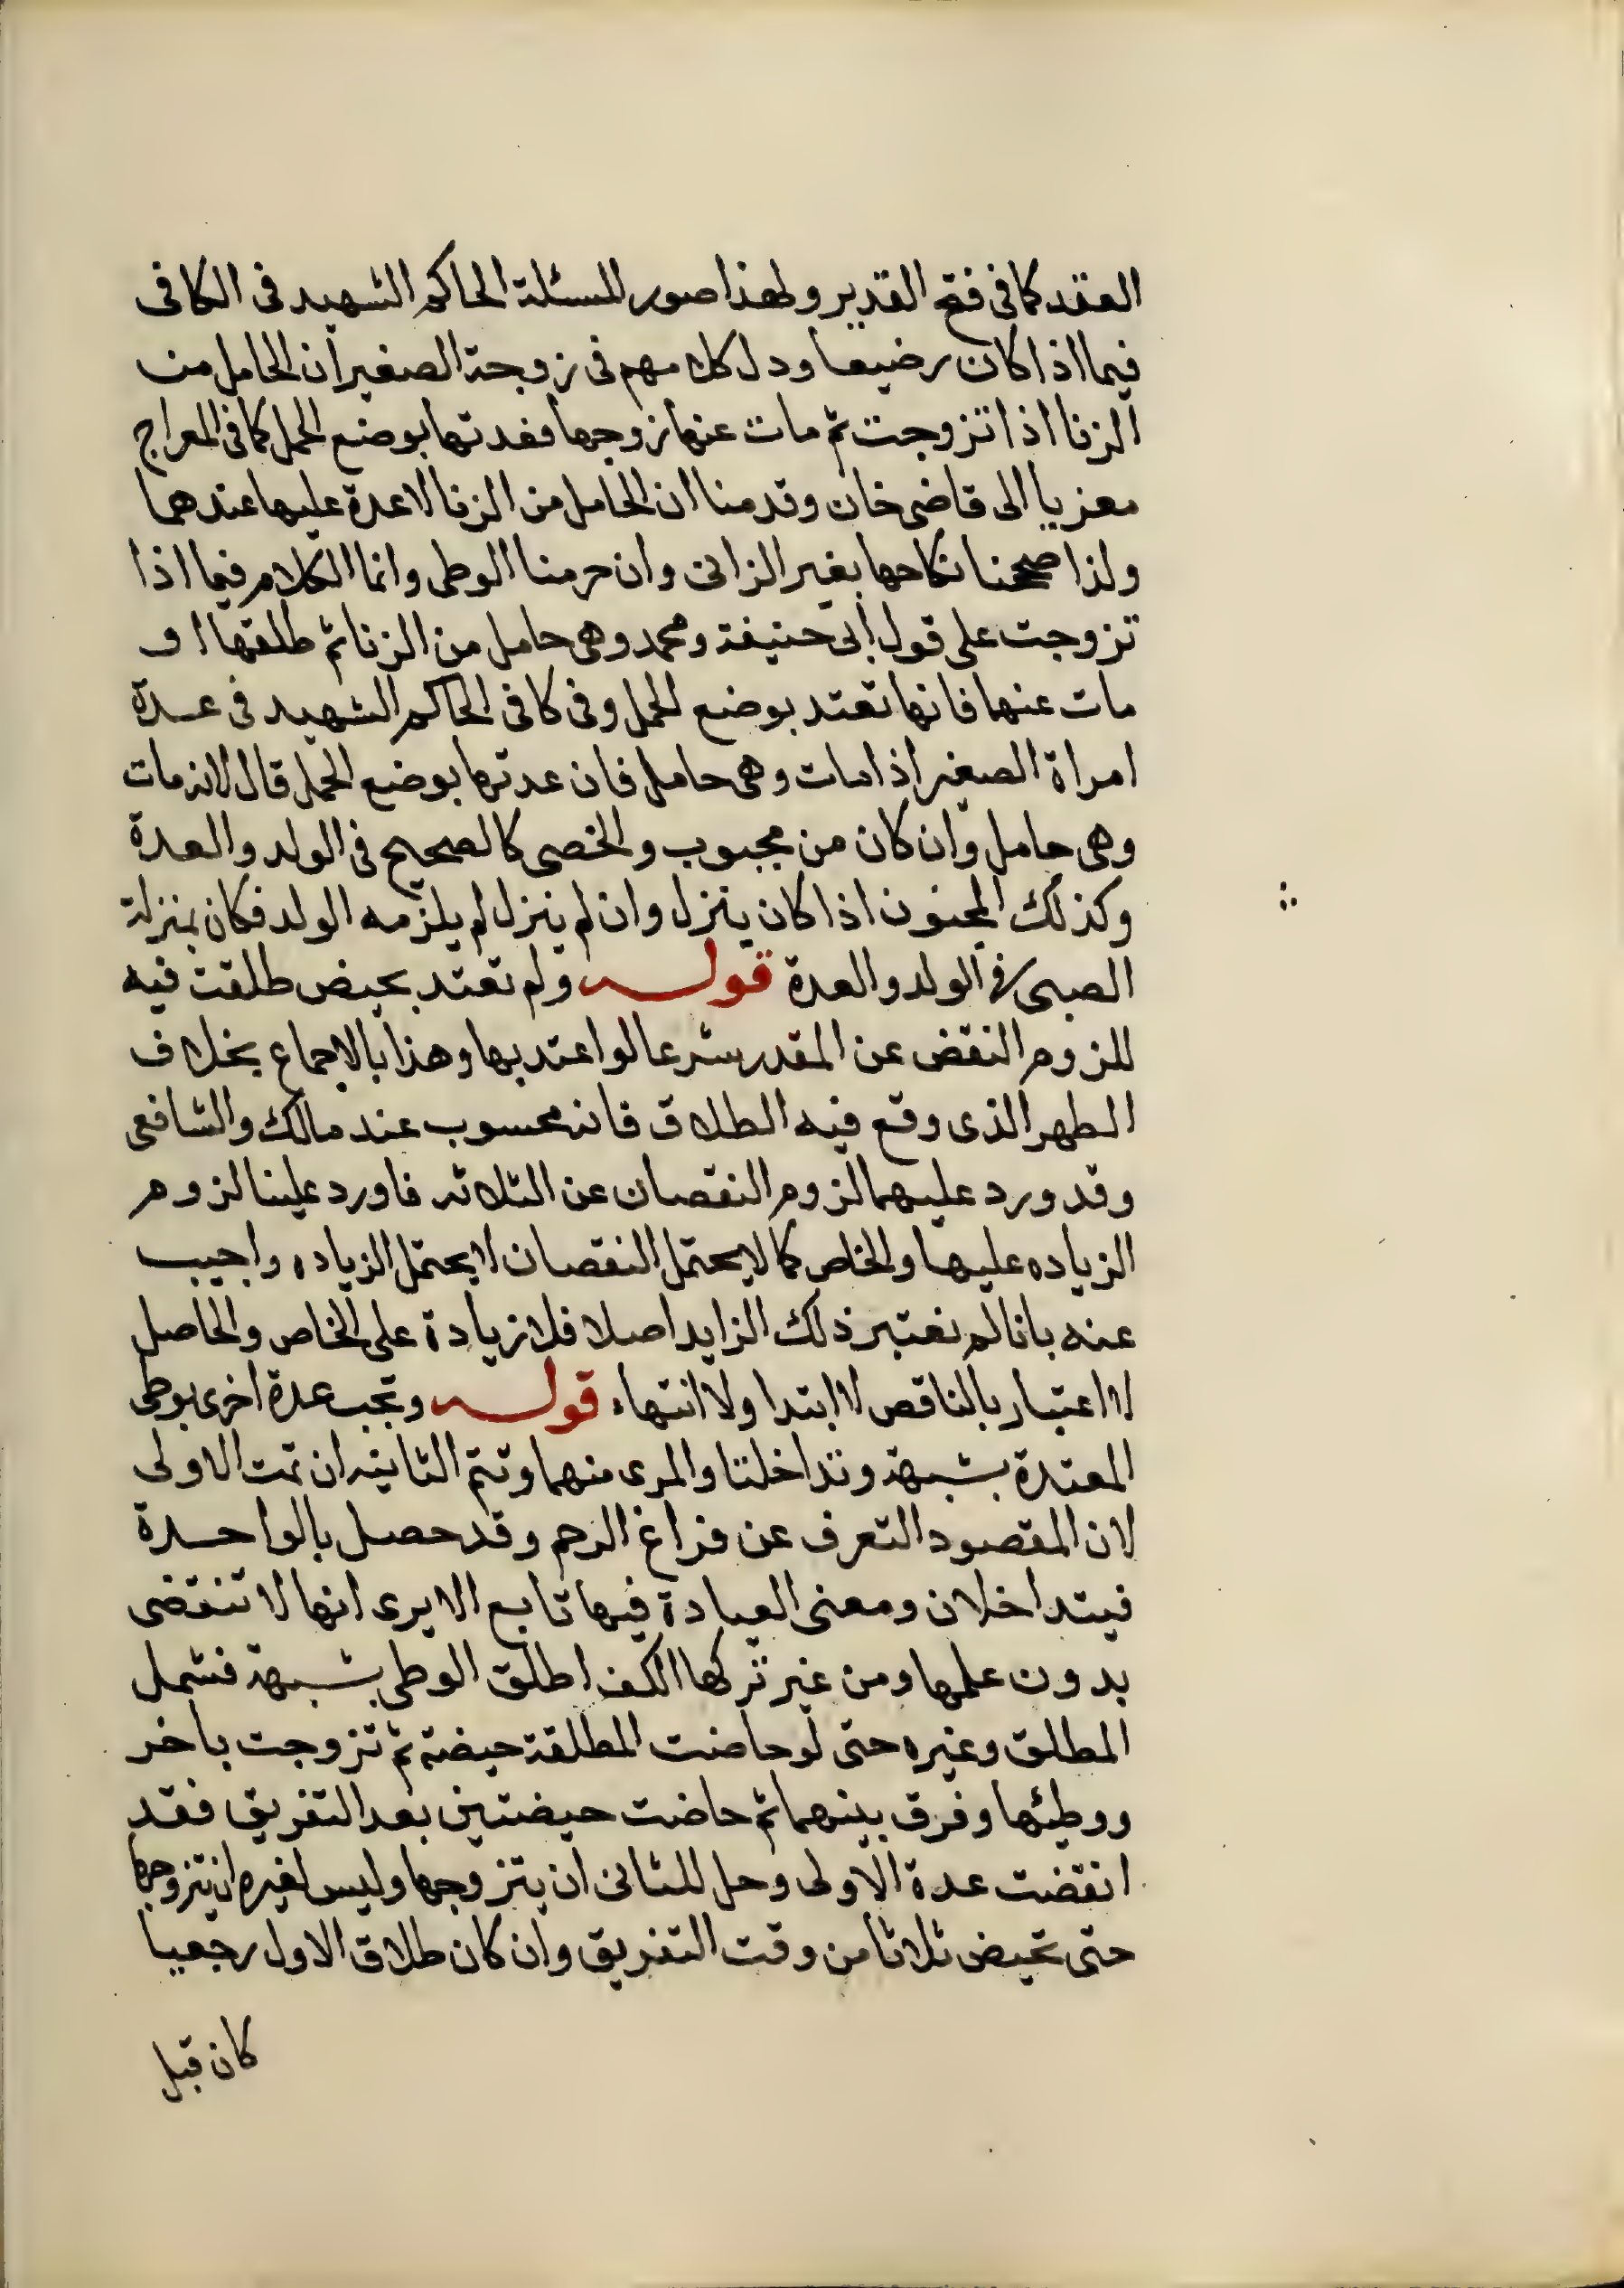 العقد كما فى فتح القدير ولهذا صور المسئلة الحاكم الشهيد فى الكافى
فيما اذا كان رضيعا ودل كلامهم فى زوجة الصغير ان الحامل من
الزنا اذا تزوجت ثم مات عنها زوجها فعدتها بوضع الحمل كما فى المعراج
معزيا الى قاضى خان وقدمنا ان الحامل من الزنا لا عدة عليها عندهما
ولذا صححنا نكاحها بغير الزانى وان حرمنا الوطى وانما الكلام فيما اذا
تزوجت على قول ابى حنيفة ومحمد وهى حامل من الزنا ثم طلقها او
مات عنها فانها تعتد بوضع الحمل وفى كافى الحاكم الشهيد فى عدة
امراة الصغير اذا مات وهى حامل فان عدتها بوضع الحمل قال لانه مات
وهى حامل وان كان من مجبوب والخصى كالصحيح فى الولد والعدة
وكذلك المجنون اذا كان ينزل وان لم ينزل لم يلزمه الولد فكان بمنزلة
الصبى فى الولد والعدة قوله ولم تعتد بحيض طلقت فيه
للزوم النقض عن المقدر شرعا لو اعتد بها وهذا بالاجماع بخلاف
الطهر الذى وقع فيه الطلاق فانه محسوب عند مالك والشافعى
وقد ورد عليهما لزوم النقصان عن الثلاثه فاورد علينا لزوم
الزياده عليها والخاص كما لا يحتمل النقصان لا يحتمل الزياده واجيب
عنه بانا لم نعتبر ذلك الزايد اصلا فلا زيادة على الخاص والحاصل
لا اعتبار بالناقص لا ابتدا ولا انتهاء قوله وتجب عدة اخرى بوطى
المعتدة بشبهة وتداخلتا والمرى منهما وتتم الثانيه ان تمت الاولى
لان المقصود التعرف عن فراغ الرحم وقد حصل بالواحدة
فيتداخلان ومعنى العبادة فيها تابع الا يرى انها لا تنقضى
بدون علمها ومن غير تركها الكف اطلق الوطى بشبهة فشمل
المطلق وغيره حتى لو حاضت المطلقة حيضة ثم تزوجت باخر
ووطئها وفرق بينهما ثم حاضت حيضتين بعد التفريق فقد
انقضت عدة الاولى وحل للثانى ان يتزوجها وليس لغيره ان يتزوجها
حتى تحيض ثلاثا من وقت التفريق وان كان طلاق الاول رجعيا
كان قبل